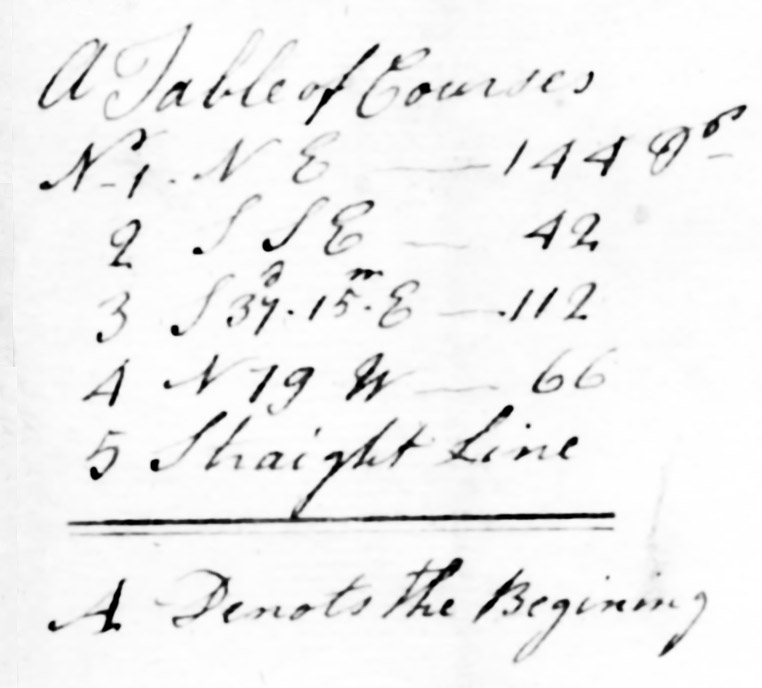 A Table of Courses
No 1. N E — 144 Ps
2 S S E — 42
3 S 37d. 15m. E — 112
4 N 79 W — 66
5 Straight Line
A Denots the Begining